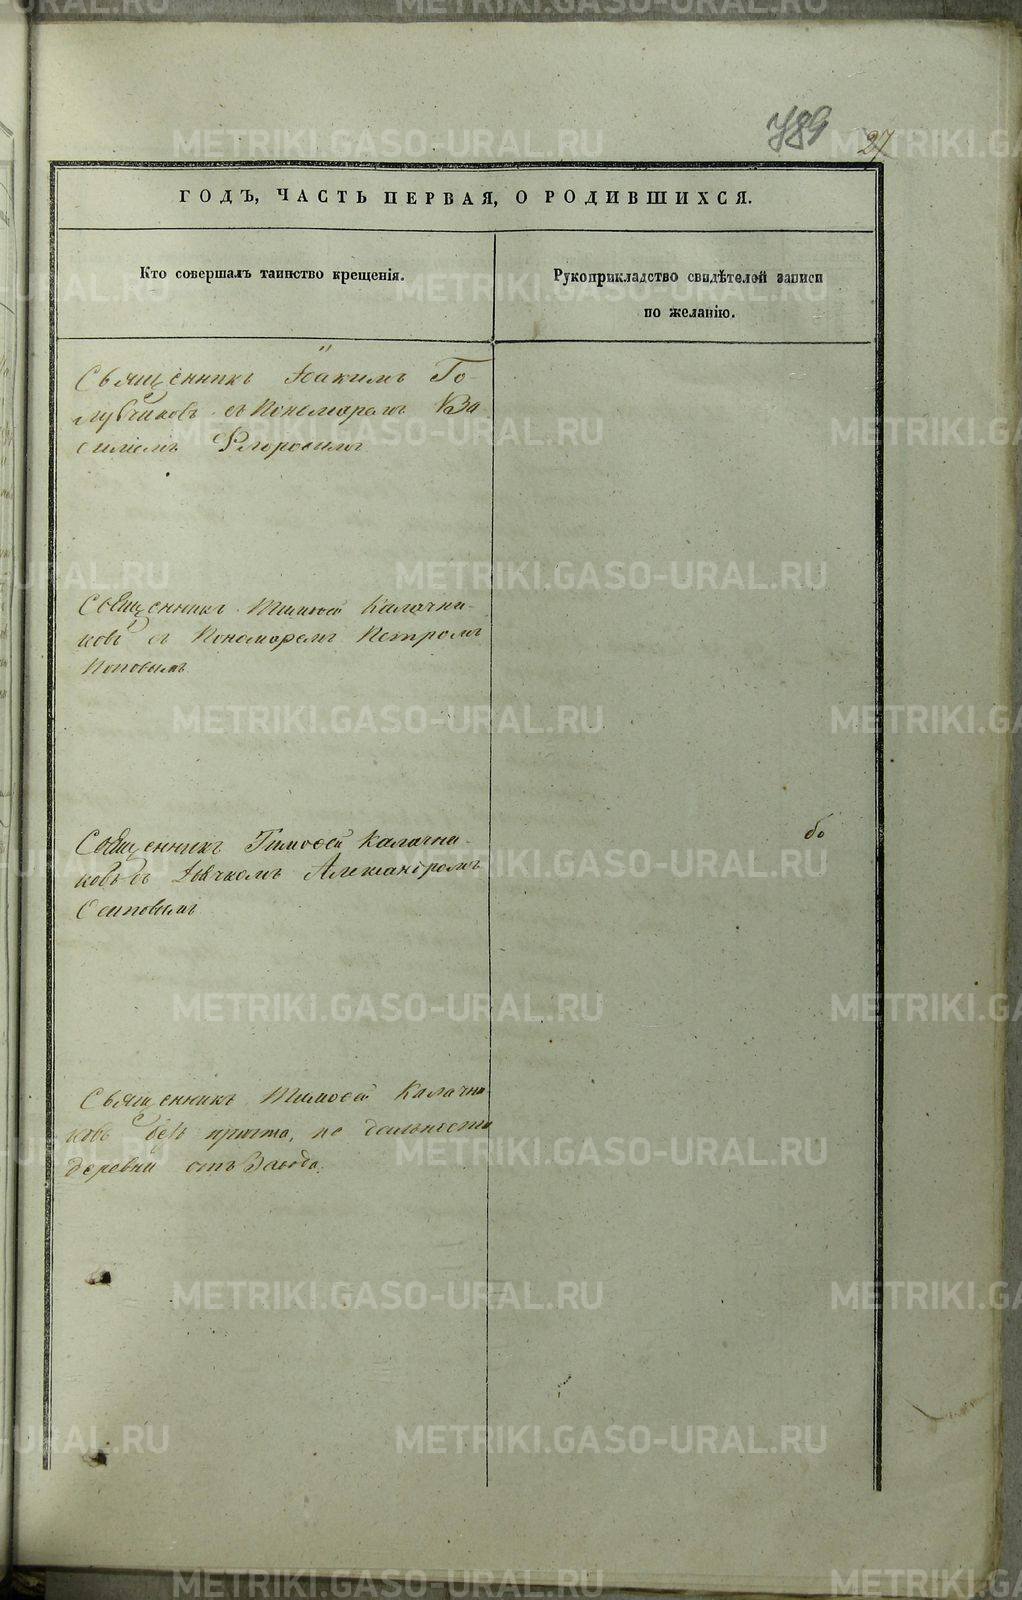 789
27
ГОДЪ, ЧАСТЬ ПЕРВАЯ, О РОДИВШИХСЯ.
Кто совершалъ таинство крещенія.
Рукоприкладство свидѣтелей записи
по желанію.
Священникъ Іоакимъ Го-
лубчиковъ съ Пономаремъ Ва
силіемъ Флоровымъ
Священникъ Тимофей Калачни-
ковъ съ Пономаремъ Петромъ
Поповымъ
Священникъ Тимофей Калачни-
ковъ съ Дьячкомъ Александромъ
Осиповымъ
бо
Священникъ Тимофей Калачни
ковъ безъ причта, по дальности
деревни отъ Завода.
METRIKI.GASO-URAL.RU